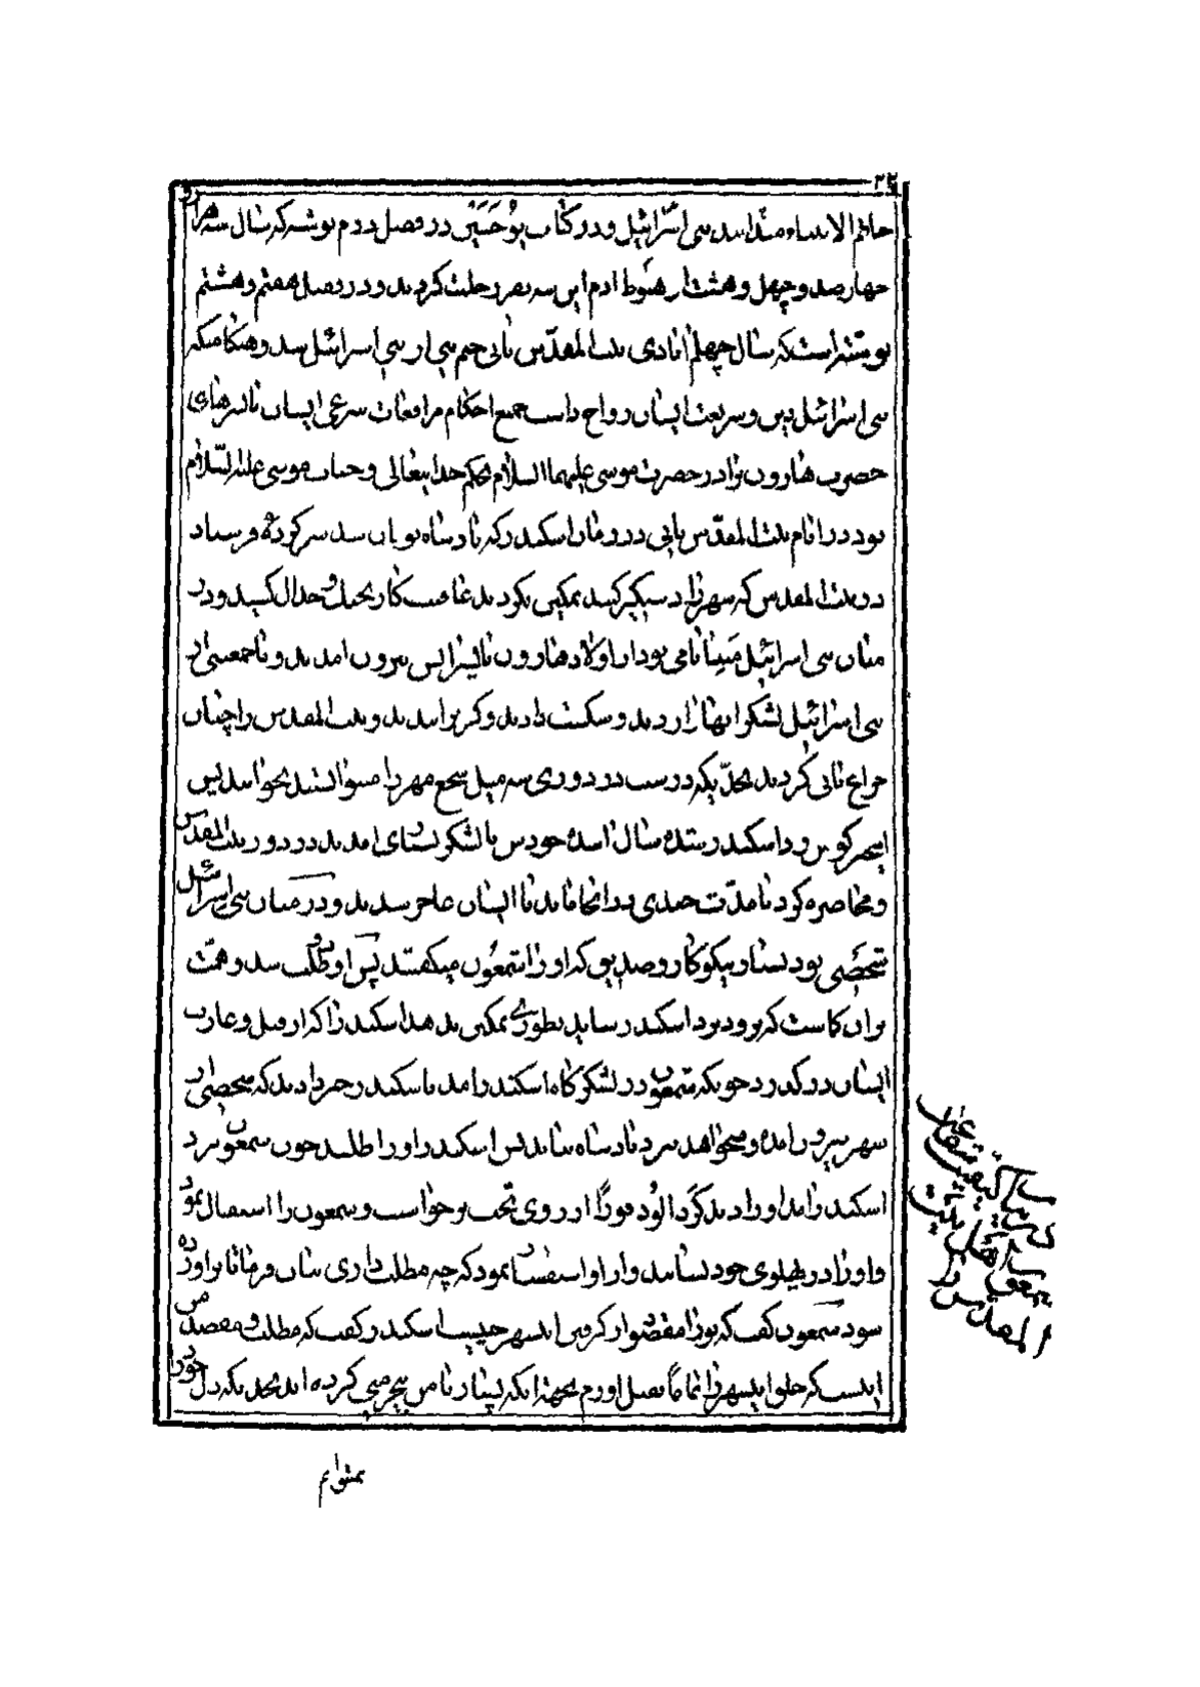 ۲۴
خاتم الانبیاء میدانند بنی اسرائیل و در کتاب یوحسین در فصل دوم نوشته که سال سه هزار و
چهارصد و چهل و هشت از هبوط ادم این سه نفر رحلت کردند و در فصل هفتم و هشتم
نوشته است که سال چهلم ابادی بیت المقدّس ثانی ختم نبی از بنی اسرائیل شد و هنگامیکه
بنی اسرائیل دین و شریعت ایشان رواج داشت جمیع احکام مرافعات شرعی ایشان با پسرهای
حضرت هارون برادر حضرت موسی علیهما السلام بحکم خدایتعالی و جناب موسی علیه السّلام
بود در ایام بیت المقدّس ثانی در زمان اسکندر که پادشاه یونان شد سرکرده فرستاد
در بیت المقدس که شهر را دستگیر کنند تمکین نکردند عاقبت کار بجنگ و جدال کشید و در
میان بنی اسرائیل مَتیتیا نامی بود از اولاد هارون با پسرانش بیرون امدند و با جمعی از
بنی اسرائیل لشکر انها را زدند و شکست دادند و گریزانیدند و بیت المقدس را چنان
چراغانی کردند بحدّیکه درست در دوری سه میل شمع مهر را میتوانستند بخوانند پس
این خبر که نزد اسکندر شده سال آینده خودش با لشکر بسیاری امدند در دور بیت المقدس
و محاصره کرد تا مدّت چندی در انجا ماندند تا ایشان عاجز شدند و در میان بنی اسرائیل
شخصی بود بسیار نیکوکار و صدیق که او را شمعون میگفتند پس او طلب شد و همّت
بر ان گماشت که برود نزد اسکندر شاید بطوری تمکین بدهد اسکندر را که از قتل و غارت
ایشان در گذرد چونکه شمعون در لشکرگاه اسکندر امد باسکندر خبر دادند که شخصی از
شهر بیرون امده و میخواهد نزد پادشاه بیاید پس اسکندر او را طلبید چون شمعون نزد
اسکندر امد او را دید گرد الود فوراً از روی تخت برخواست و شمعون را استقبال نمود
و او را در پهلوی خود نشانید و از او استفسار نمود که چه مطلب داری بیان فرما تا براورده
شود شمعون گفت که تو را مقصود از گرفتن این شهر چیست اسکندر گفت که مطلب و مقصد من
اینست که خلق این شهر را تماماً بقتل اورم بجهة اینکه بسیار با من بیحرمتی کرده اند بحدیکه دل خود را
نمیتوانم
المقدس را